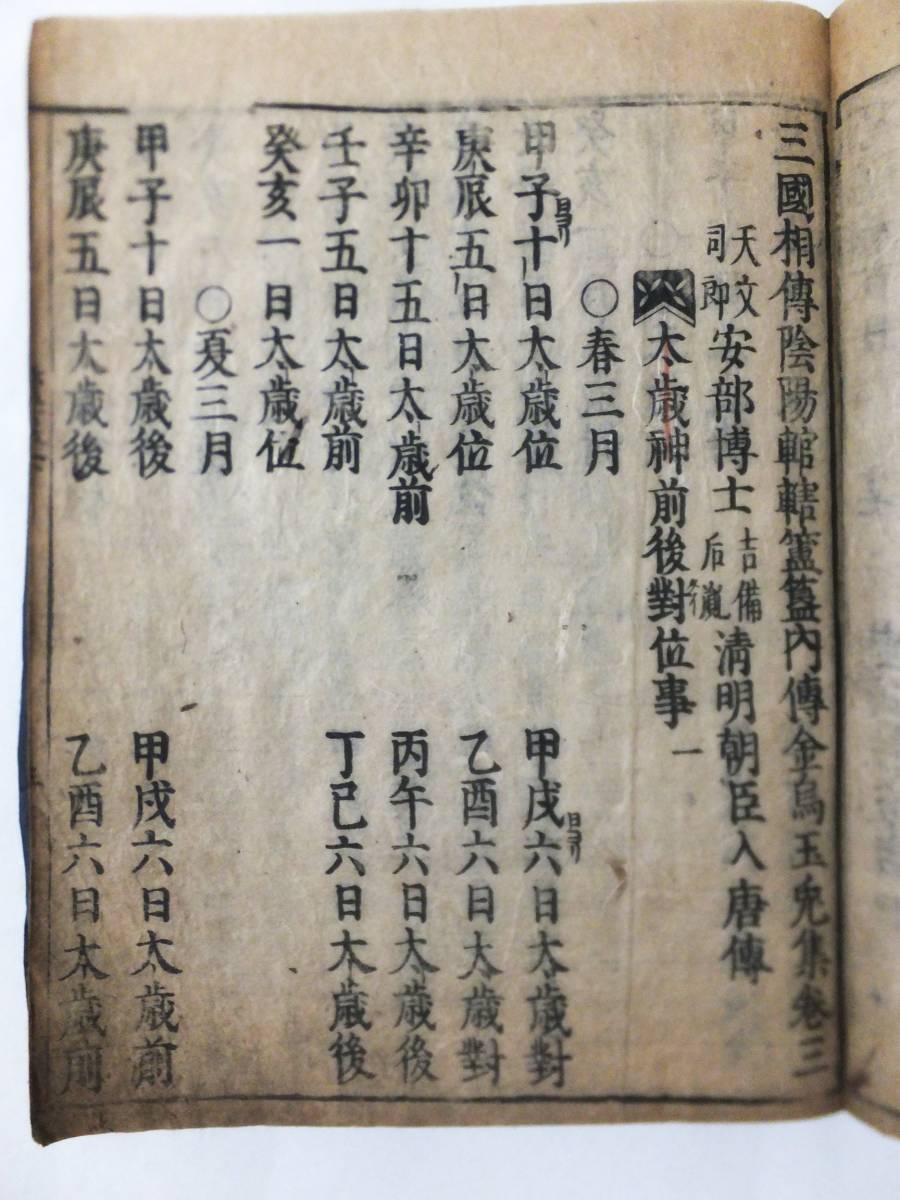 三國相傳陰陽輨轄簠簋內傳金烏玉兔集卷三
天文司郎安部博士吉備后胤清明朝臣入唐傳
太歲神前後對位事一
○春三月
甲子十日太歲位 甲戌六日太歲對
庚辰五日太歲位 乙酉六日太歲對
辛卯十五日太歲前 丙午六日太歲後
壬子五日太歲前 丁巳六日太歲後
癸亥一日太歲位
○夏三月
甲子十日太歲後 甲戌六日太歲前
庚辰五日太歲後 乙酉六日太歲前